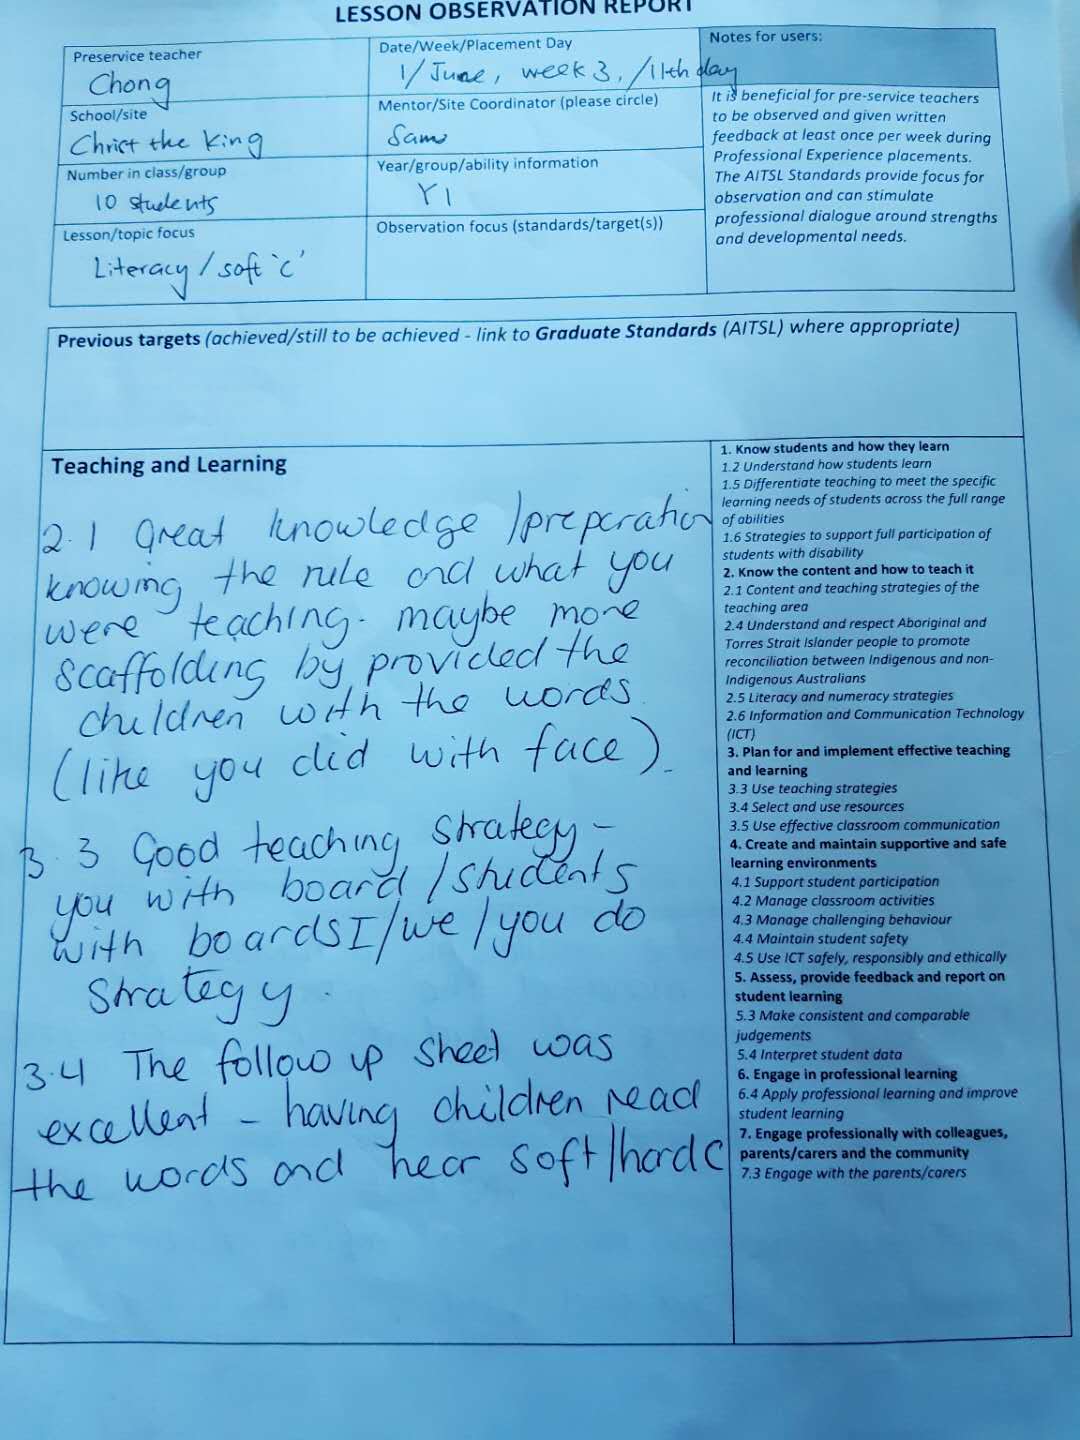 LESSON OBSERVATION REPORT
Preservice teacher
Chong
Date/Week/Placement Day
1/June, week 3, /11th day
Notes for users:
School/site
Christ the King
Mentor/Site Coordinator (please circle)
Sam
Number in class/group
10 students
Year/group/ability information
Y1
Lesson/topic focus
Literacy / soft 'c'
Observation focus (standards/target(s))
It is beneficial for pre-service teachers
to be observed and given written
feedback at least once per week during
Professional Experience placements.
The AITSL Standards provide focus for
observation and can stimulate
professional dialogue around strengths
and developmental needs.
Previous targets (achieved/still to be achieved - link to Graduate Standards (AITSL) where appropriate)
Teaching and Learning
2.1 Great knowledge /preparation
knowing the rule and what you
were teaching. maybe more
scaffolding by provided the
children with the words
(like you did with face).
3.3 Good teaching strategy -
you with board /students
with boards I/we/you do
strategy.
3.4 The follow up sheet was
excellent - having children read
the words and hear soft/hard c
1. Know students and how they learn
1.2 Understand how students learn
1.5 Differentiate teaching to meet the specific
learning needs of students across the full range
of abilities
1.6 Strategies to support full participation of
students with disability
2. Know the content and how to teach it
2.1 Content and teaching strategies of the
teaching area
2.4 Understand and respect Aboriginal and
Torres Strait Islander people to promote
reconciliation between Indigenous and non-
Indigenous Australians
2.5 Literacy and numeracy strategies
2.6 Information and Communication Technology
(ICT)
3. Plan for and implement effective teaching
and learning
3.3 Use teaching strategies
3.4 Select and use resources
3.5 Use effective classroom communication
4. Create and maintain supportive and safe
learning environments
4.1 Support student participation
4.2 Manage classroom activities
4.3 Manage challenging behaviour
4.4 Maintain student safety
4.5 Use ICT safely, responsibly and ethically
5. Assess, provide feedback and report on
student learning
5.3 Make consistent and comparable
judgements
5.4 Interpret student data
6. Engage in professional learning
6.4 Apply professional learning and improve
student learning
7. Engage professionally with colleagues,
parents/carers and the community
7.3 Engage with the parents/carers